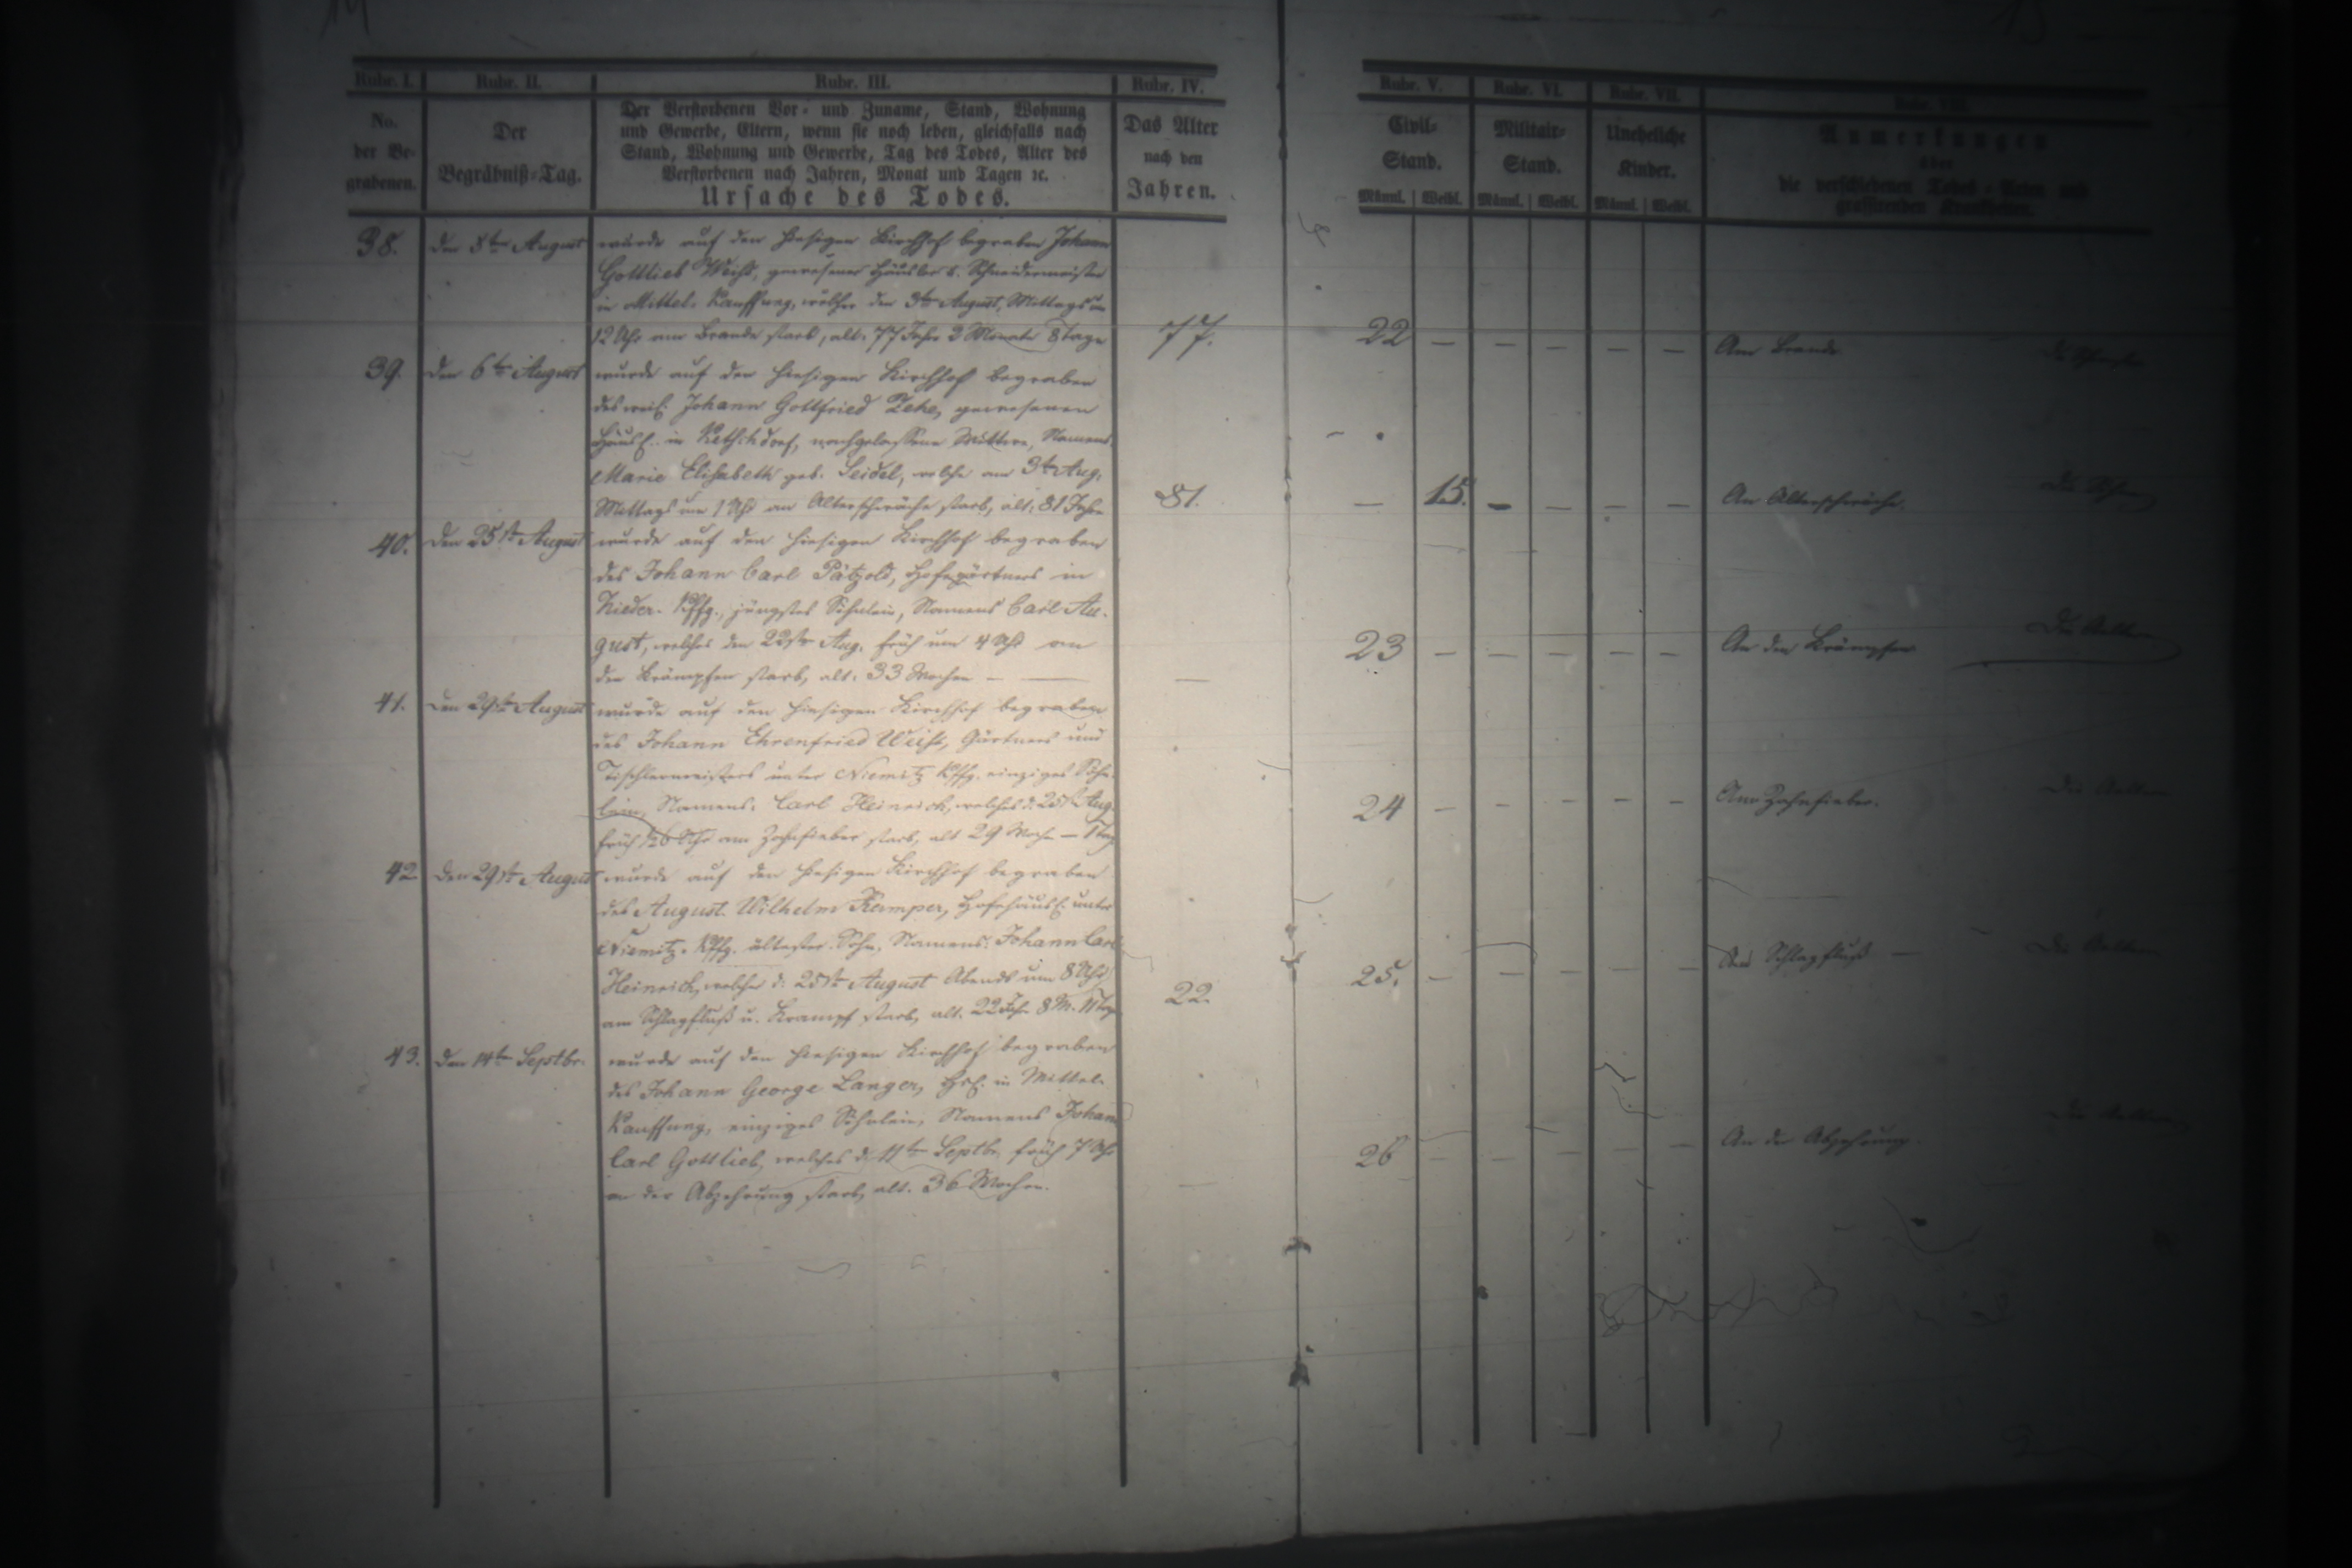 14
15
Rubr. I.
Rubr. II.
Rubr. III.
Rubr. IV.
Rubr. V.
Rubr. VI.
Rubr. VII.
Rubr. VIII.
No.
der Be-
grabenen.
Der
Begräbniß-Tag.
Der Verstorbenen Vor- und Zuname, Stand, Wohnung
und Gewerbe, Eltern, wenn sie noch leben, gleichfalls nach
Stand, Wohnung und Gewerbe, Tag des Todes, Alter des
Verstorbenen nach Jahren, Monat und Tagen ꝛc.
Ursache des Todes.
Das Alter
nach den
Jahren.
Civil-
Stand.
Männl. Weibl.
Militair-
Stand.
Männl. Weibl.
Uneheliche
Kinder.
Männl. Weibl.
Anmerkungen
über
die verschiedenen Todes-Arten und
grassirenden Krankheiten.
38. den 5ten August wurde auf den hiesigen Kirchhof begraben Johann
Gottlieb Weist, gewesener Häusler u. Schneidermeister
in Mittel-Kauffung, welcher den 3ten August, Mittags um
12 Uhr am Brande starb, alt: 77 Jahr 2 Monate 8 Tage 77. 22 — — — — — Am Brande.
39. den 6ten August wurde auf den hiesigen Kirchhof begraben
des weil. Johann Gottfried Zehe, gewesenen
Häusl. in Ketschdorf, nachgelassene Wittwe, Namens
Marie Elisabeth geb. Seidel, welche am 3ten Aug.
Mittags um 1 Uhr an Alterschwäche starb, alt: 81 Jahr 81. — 15. — — — — An Alterschwäche.
40. den 25sten August wurde auf den hiesigen Kirchhof begraben
des Johann Carl Pätzold, Hofegärtners in
Nieder-Kffg., jüngstes Söhnlein, Namens Carl Au-
gust, welches den 22sten Aug. früh um 4 Uhr an
den Krämpfen starb, alt: 33 Wochen — — 23 — — — — — An den Krämpfen
41. den 29sten August wurde auf den hiesigen Kirchhof begraben
des Johann Ehrenfried Weist, Gärtners und
Tischlermeisters unter Niemitz Kffg. einziges Söhn-
lein, Namens: Carl Heinrich, welches d: 25st Aug.
früh ½6 Uhr am Zahnfieber starb, alt 29 Woche — 1 Tag 24 — — — — — Am Zahnfieber.
42. den 29sten August wurde auf den hiesigen Kirchhof begraben
des August Wilhelm Kamper, Hofehäusl. unter
Niemitz-Kffg. ältester Sohn, Namens: Johann Carl
Heinrich, welcher d: 25sten August Abends um 8 Uhr
am Schlagfluß u. Krampf starb, alt: 22 Jahr 8 M. 11 Tage 22. 25. — — — — — Am Schlagfluß —
43. den 14ten Septbr. wurde auf den hiesigen Kirchhof begraben
des Johann George Langer, Hsl. in Mittel-
Kauffung, einziges Söhnlein, Namens Johann
Carl Gottlieb, welches d. 11ten Septbr. früh 7 Uhr
an der Abzehrung starb, alt: 36 Wochen. — 26 — — — — — An der Abzehrung.